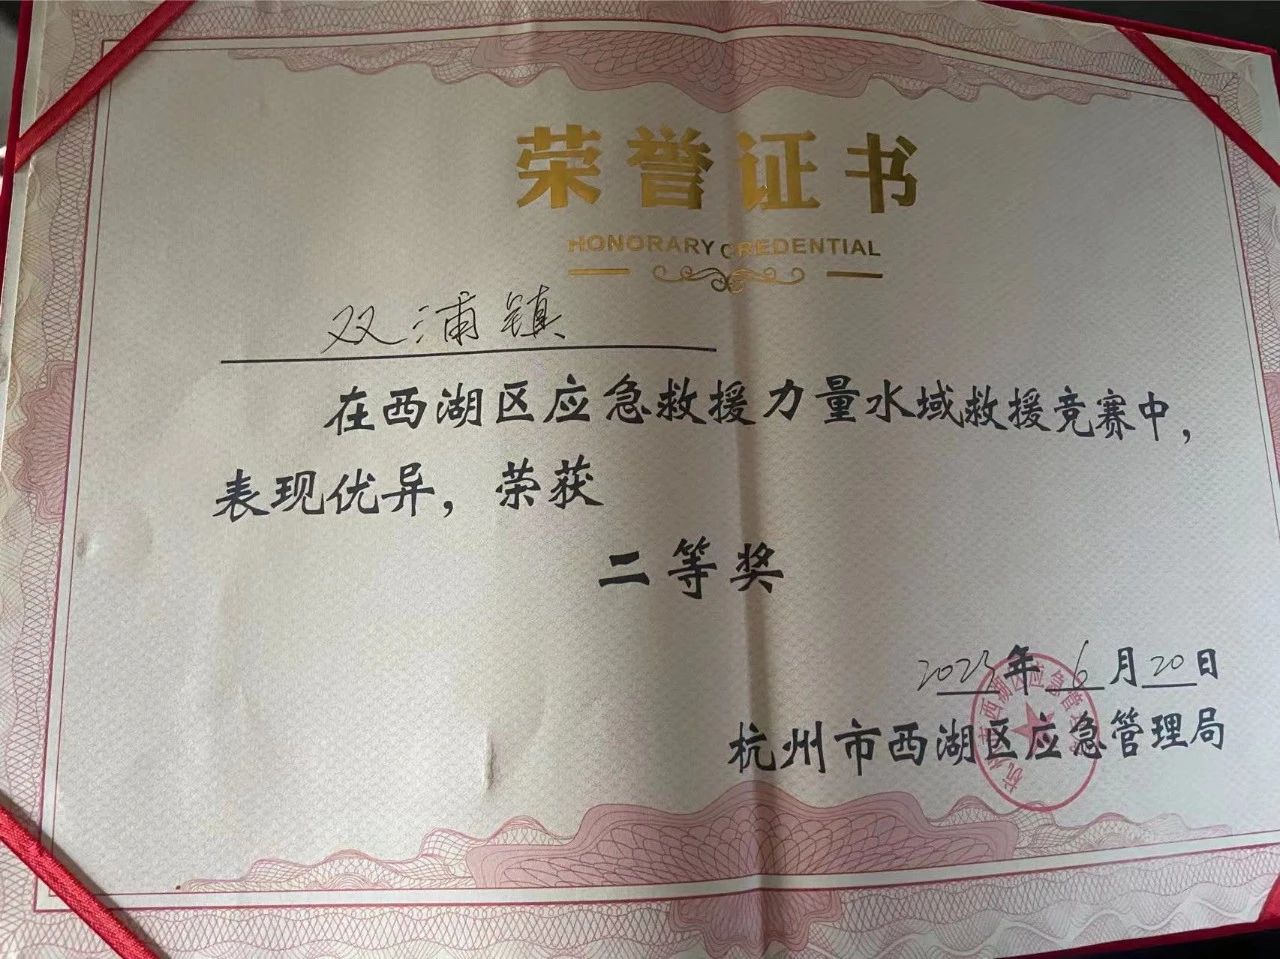 荣誉证书
HONORARY CREDENTIAL
双浦镇
在西湖区应急救援力量水域救援竞赛中，
表现优异，荣获
二等奖
2023年6月20日
杭州市西湖区应急管理局